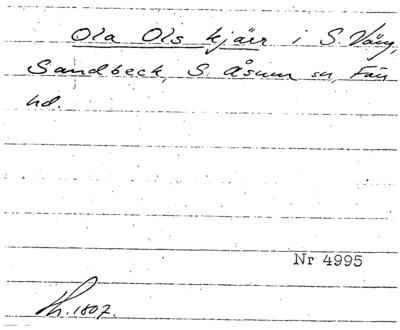 Ola Ols kjärr i S. Vång,
Sandbeck, S. Åsum sn, Färs
hd.
Nr 4995
Sk. 1807.